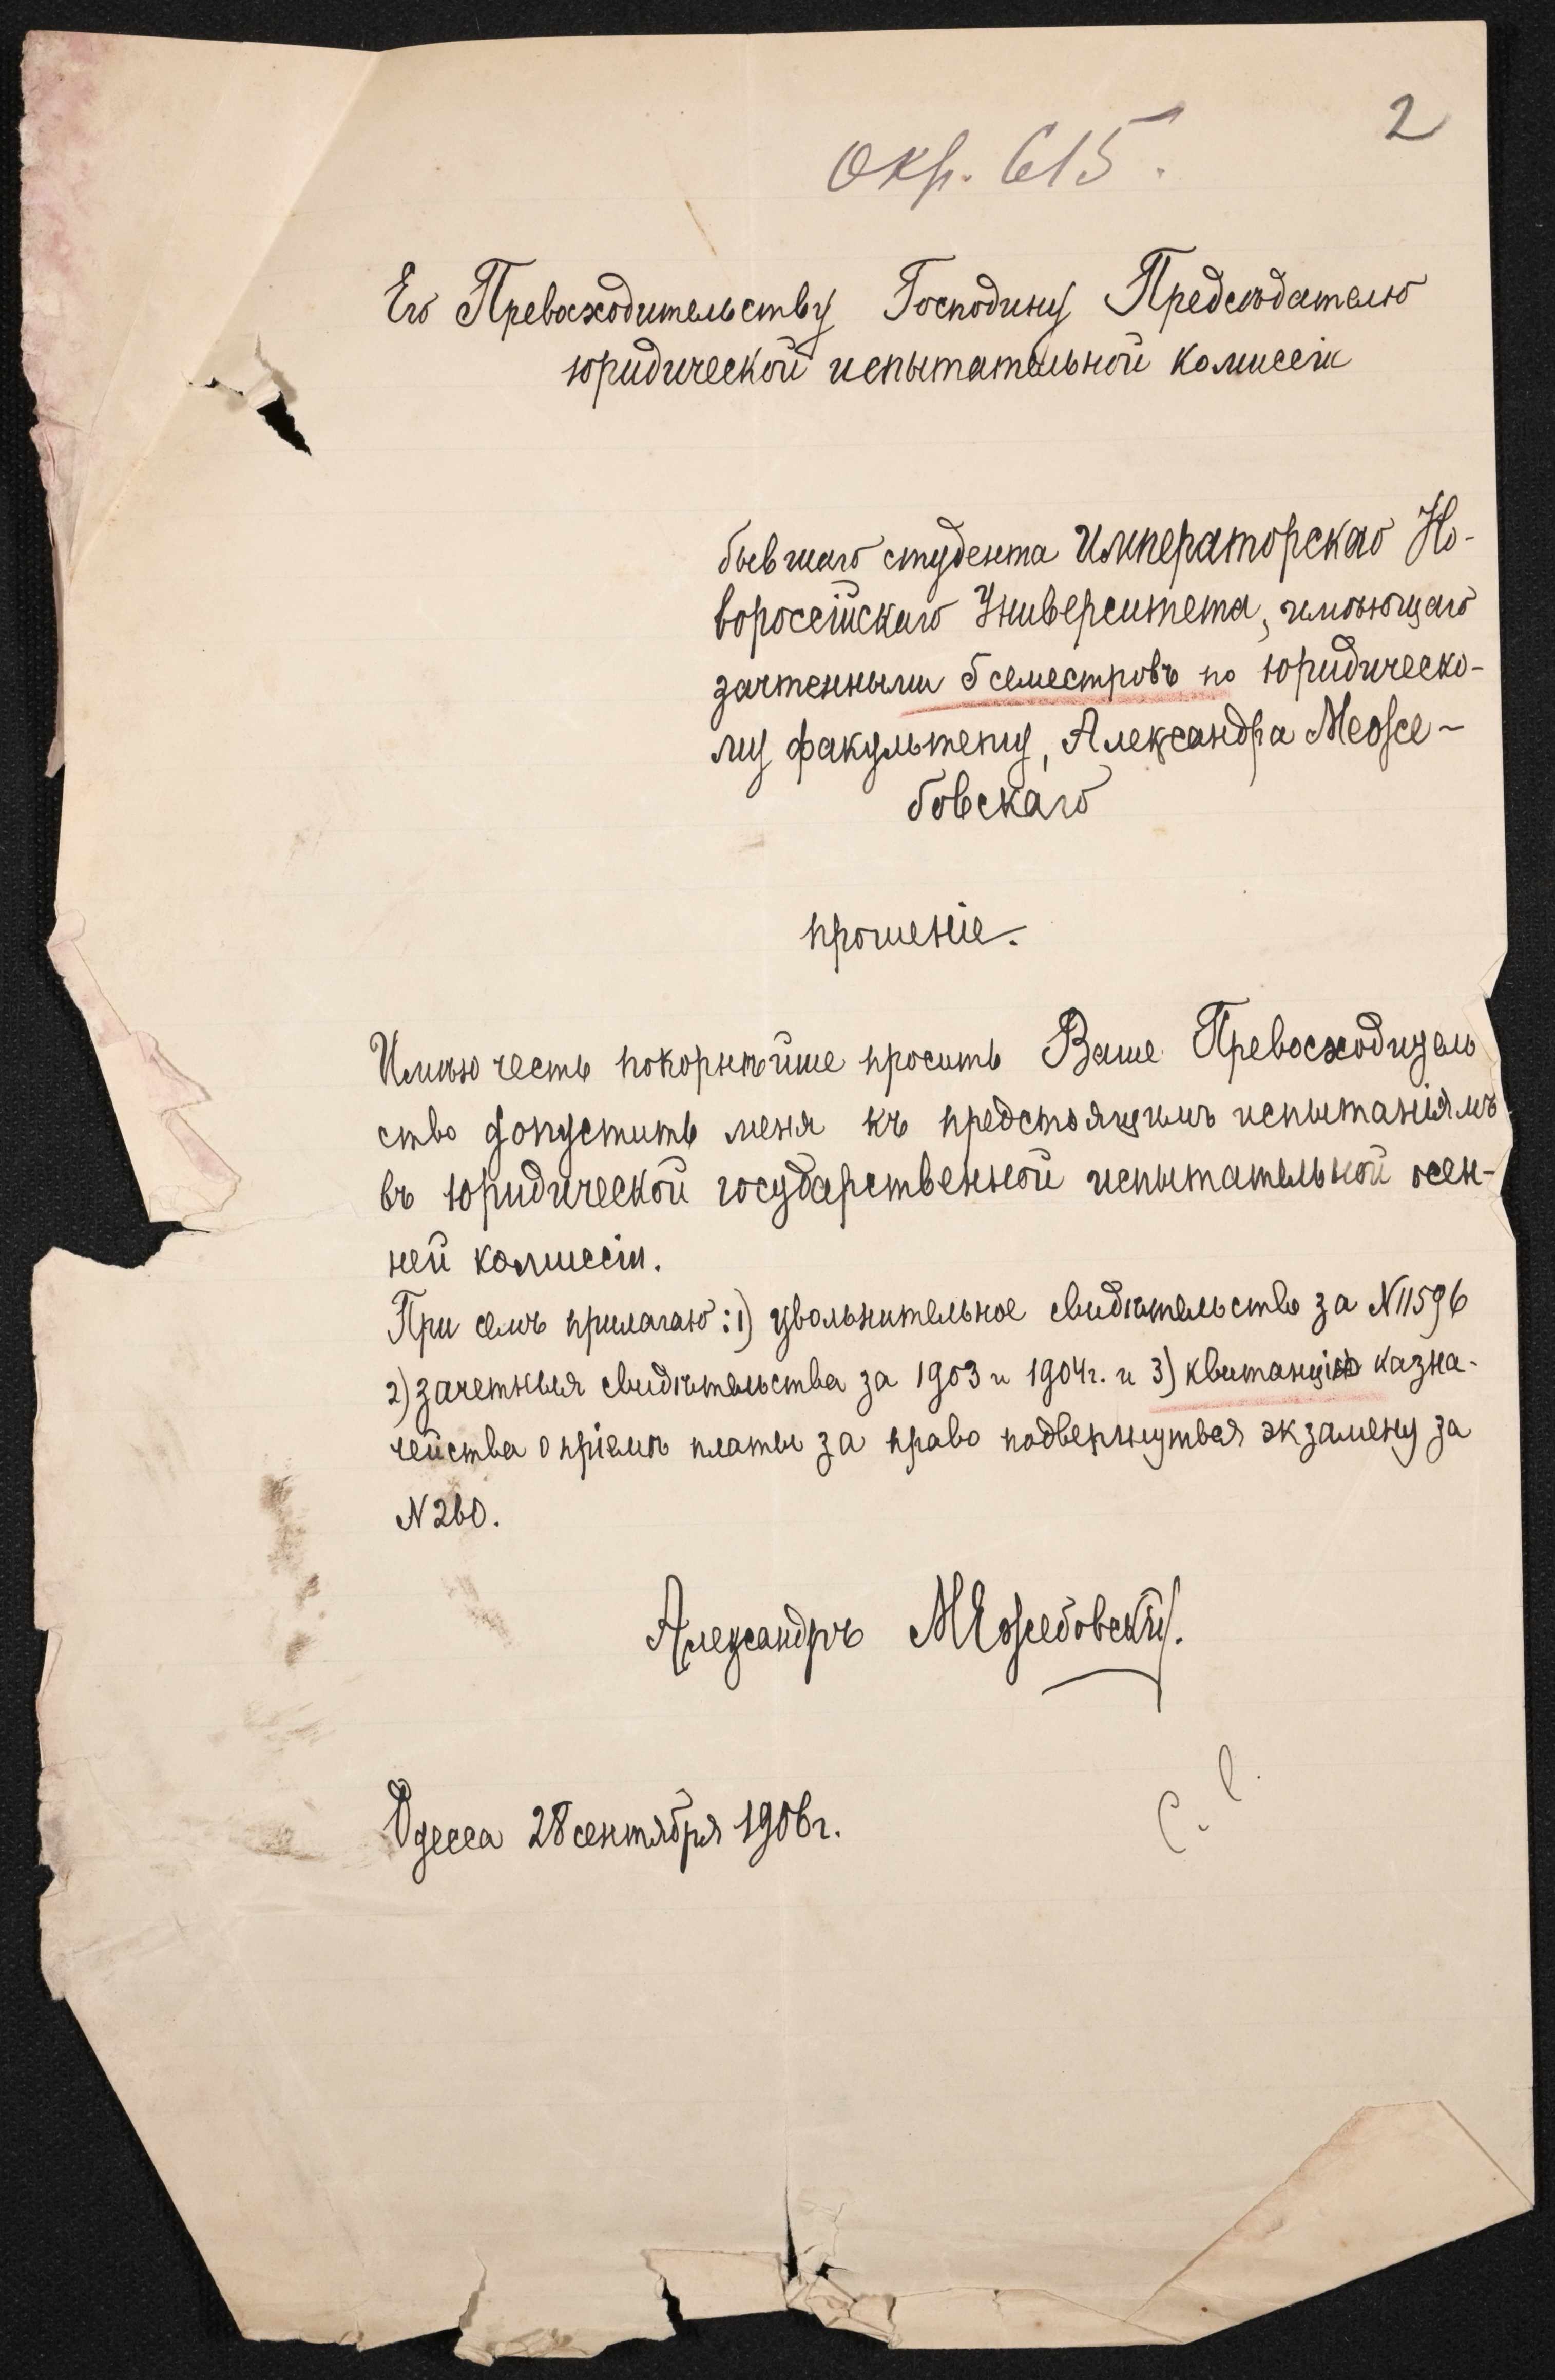 2
Окр. 615.
Его Превосходительству Господину Предсѣдателю
юридической испытательной комиссіи
бывшаго студента Императорскаго Но-
вороссійскаго Университета, имѣющаго
зачтенными 5 семестровъ по юридическо-
му факультету, Александра Меже-
бовскаго
прошеніе.
Имѣю честь покорнѣйше просить Ваше Превосходитель
ство допустить меня къ предстоящимъ испытаніямъ
въ юридической государственной испытательной осен-
ней комиссіи.
При семъ прилагаю: 1) увольнительное свидѣтельство за N 11596
2) зачетныя свидѣтельства за 1903 и 1904 г. и 3) квитанцію казна-
чейства о пріемѣ платы за право подвергнуться экзамену за
N 260.
Александръ Межебовскій.
Одесса 28 сентября 1906 г.